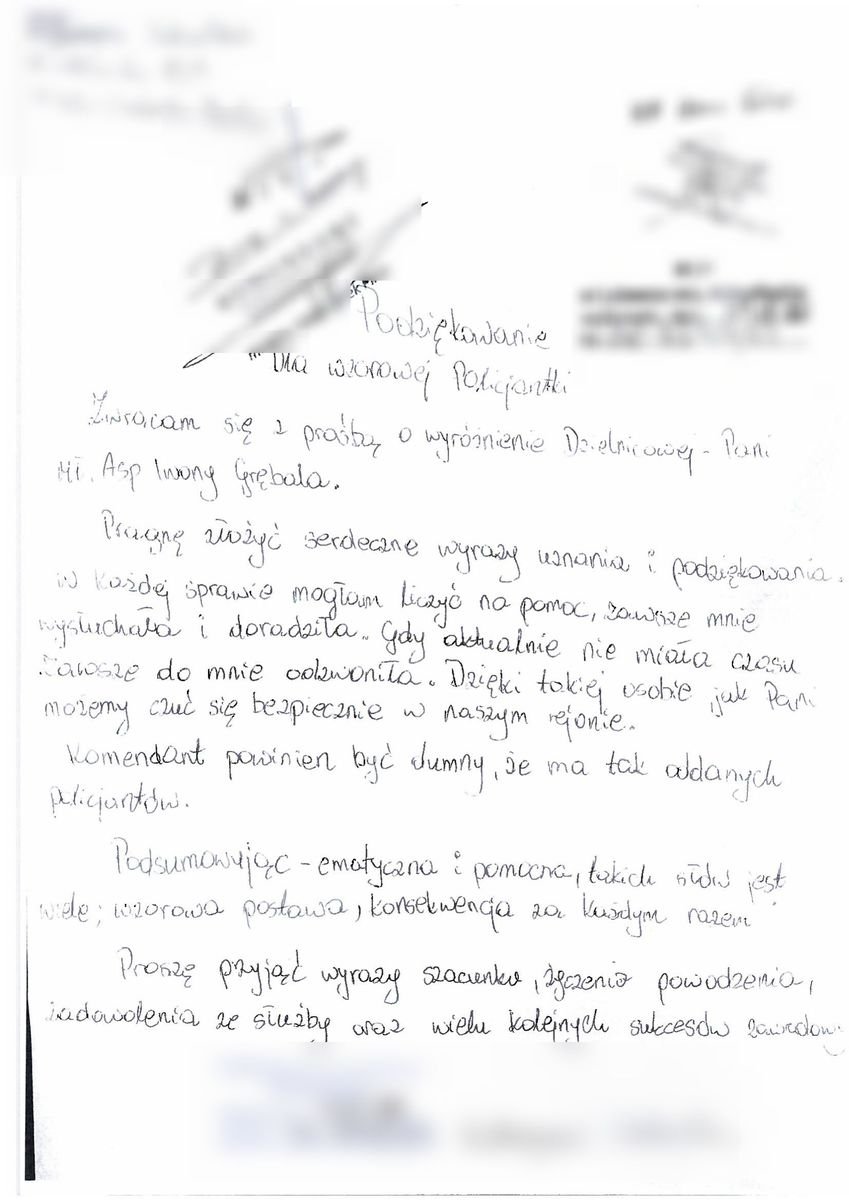 Podziękowanie
Dla wzorowej Policjantki
Zwracam się z prośbą o wyróśnienie Dzielnicowej - Pani
Mł. Asp Iwony Grębala.
Pragnę złożyć serdeczne wyrazy uznania i podziękowania.
W każdej sprawie mogłam liczyć na pomoc, zawsze mnie
wysłuchała i doradziła. Gdy aktualnie nie miała czasu
zawsze do mnie oddzwoniła. Dzięki takiej osobie jak Pani
możemy czuć się bezpiecznie w naszym rejonie.
Komendant powinien być dumny, że ma tak oddanych
policjantów.
Podsumowując - ematyczna i pomocna, takich słów jest
wiele; wzorowa postawa, konsekwencja za każdym razem
Proszę przyjąć wyrazy szacunku, życzenia powodzenia,
zadowolenia ze służby oraz wielu kolejnych sukcesów